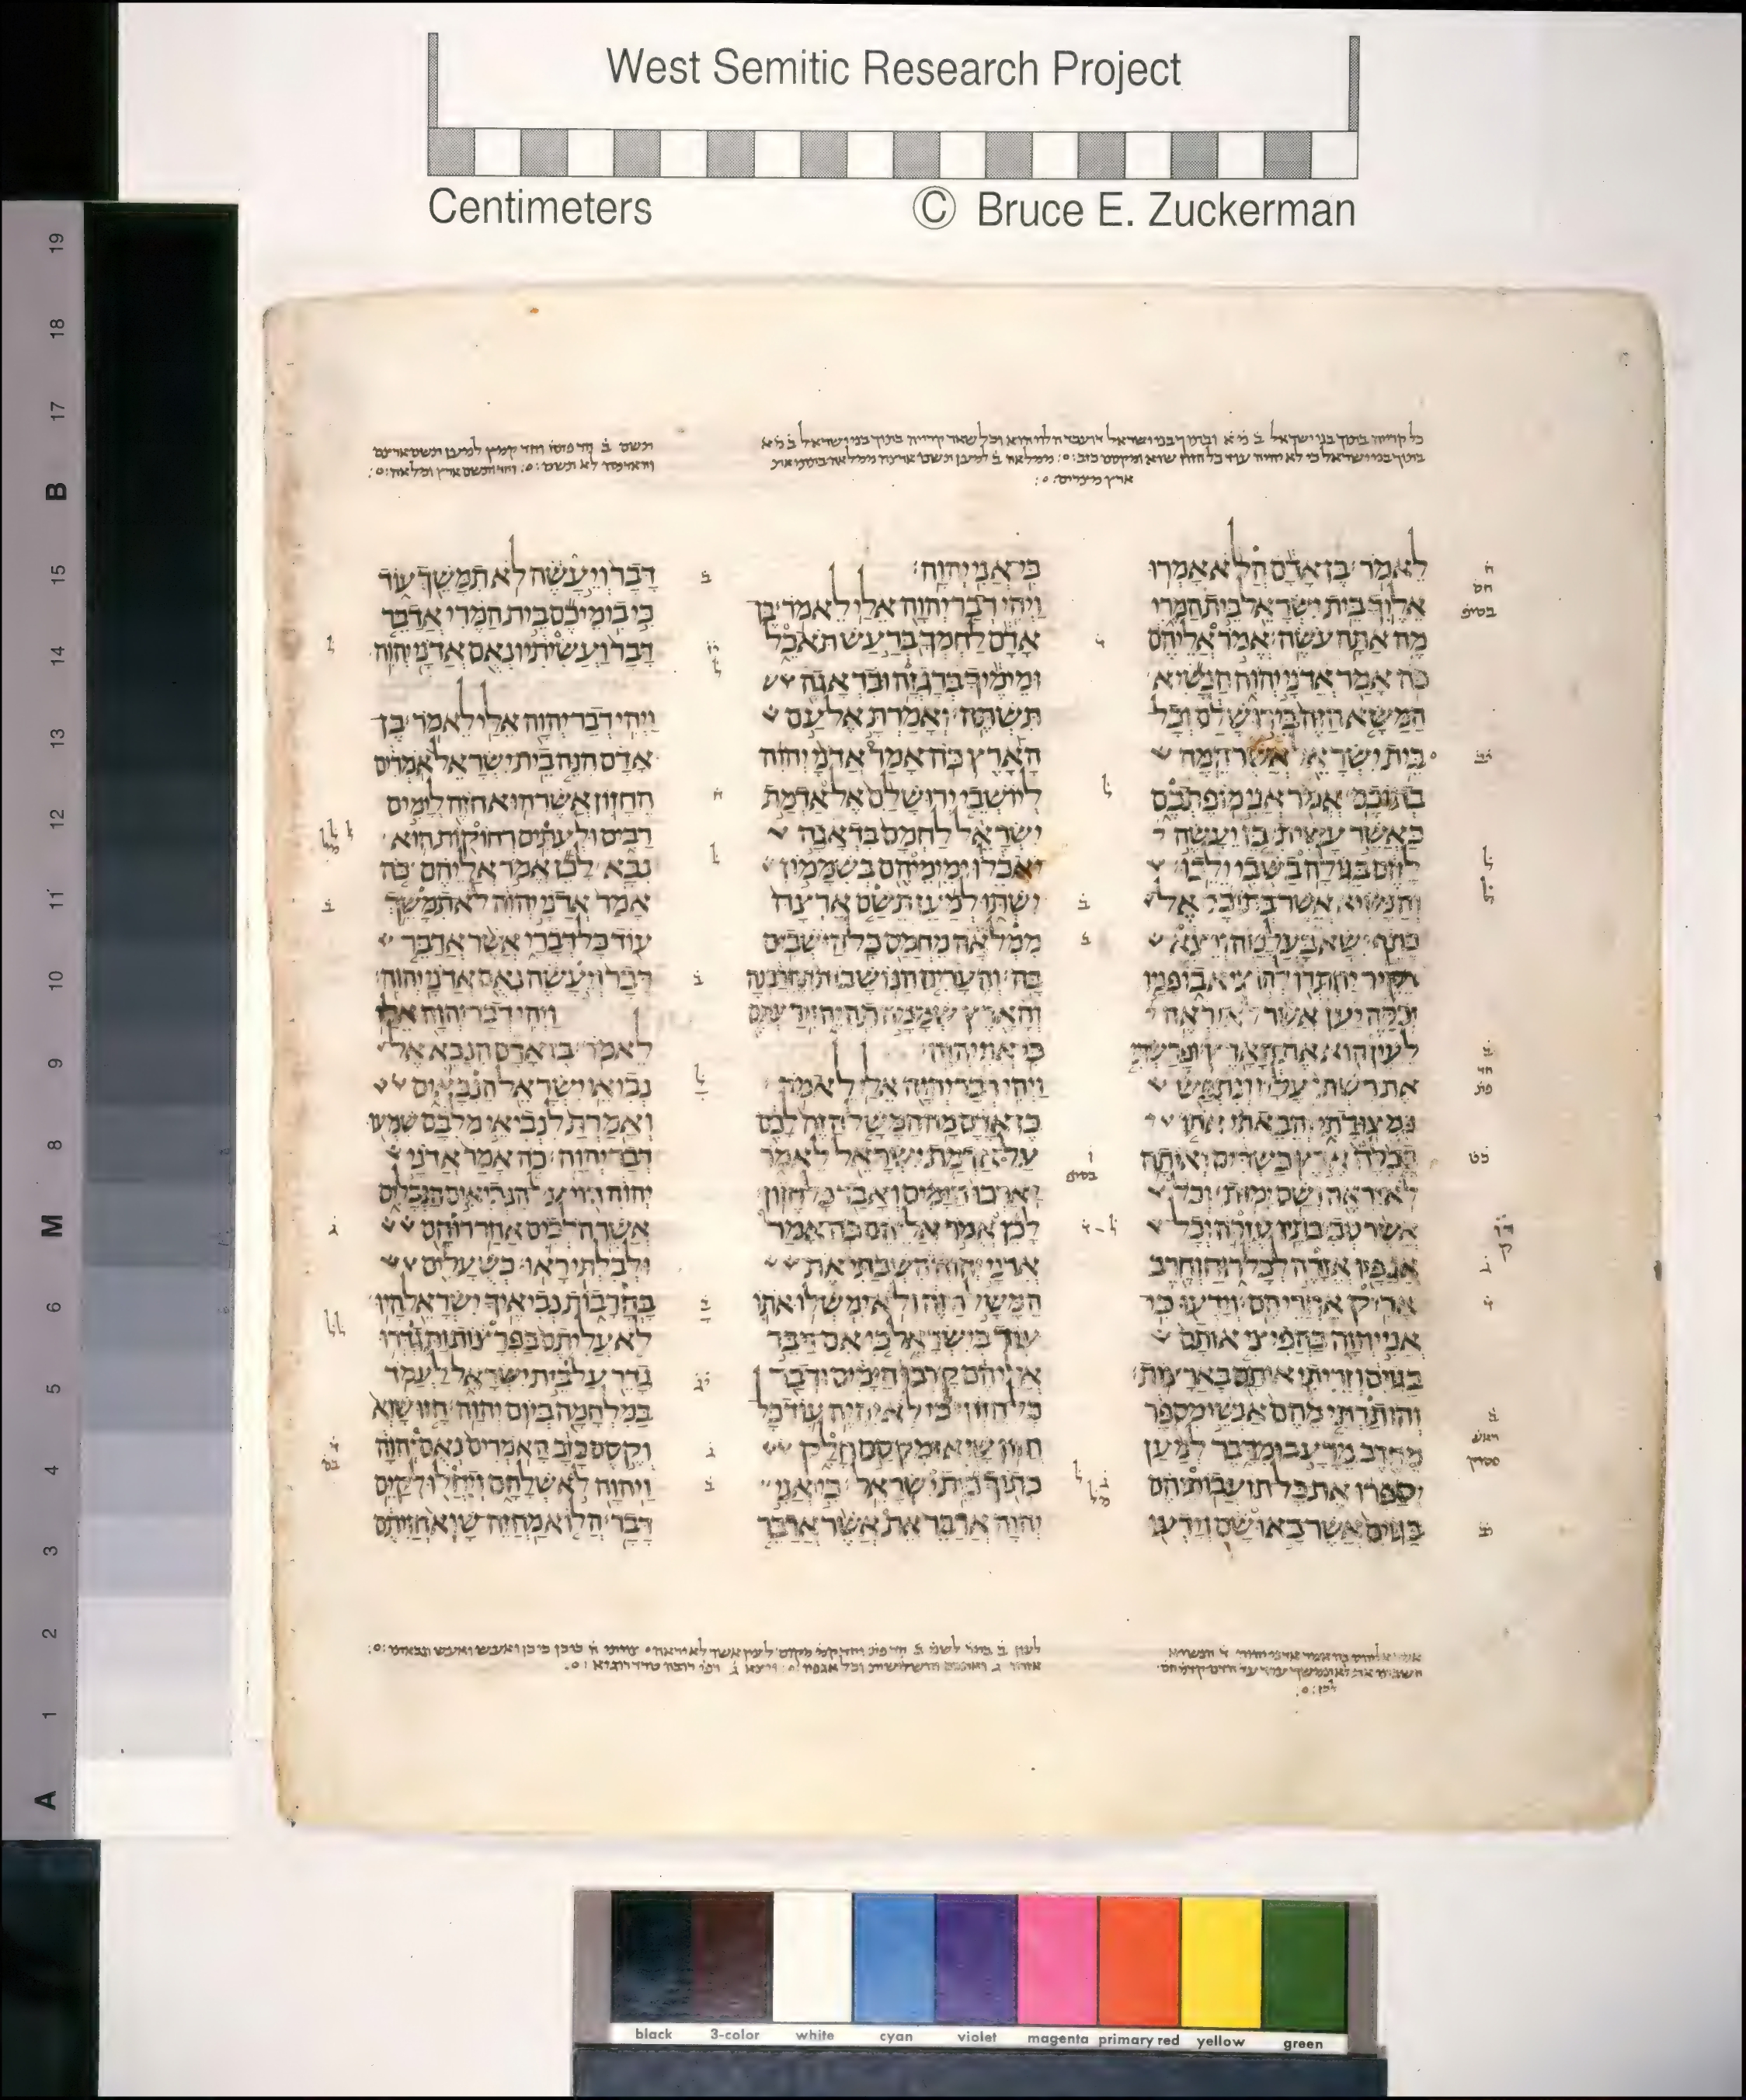 West Semitic Research Project
Centimeters © Bruce E. Zuckerman
לאמר בן אדם הלא אמרו
אליך בית ישראל בית המרי
מה אתה עשה אמר אליהם
כה אמר אדני יהוה הנשיא
המשא הזה בירושלם וכל
בית ישראל אשר המה
בתוכם אמר אני מופתכם
כאשר עשיתי כן יעשה
להם בגולה בשבי ילכו
והנשיא אשר בתוכם אל
כתף ישא בעלטה ויצא
בקיר יחתרו להוציא בו פניו
יכסה יען אשר לא יראה
לעין הוא את הארץ ופרשתי
את רשתי עליו ונתפש
במצודתי והבאתי אתו
בבלה ארץ כשדים ואותה
לא יראה ושם ימות וכל
אשר סביבתיו עזרה וכל
אגפיו אזרה לכל רוח וחרב
אריק אחריהם וידעו כי
אני יהוה בהפיצי אותם
בגוים וזריתי אותם בארצות
והותרתי מהם אנשי מספר
מחרב מרעב ומדבר למען
יספרו את כל תועבותיהם
בגוים אשר באו שם וידעו
כי אני יהוה
ויהי דבר יהוה אלי לאמר בן
אדם לחמך ברעש תאכל
ומימיך ברגזה ובדאגה
תשתה ואמרת אל עם
הארץ כה אמר אדני יהוה
ליושבי ירושלם אל אדמת
ישראל לחמם בדאגה
יאכלו ומימיהם בשממון
ישתו למען תשם ארצה
ממלאה מחמס כל הישבים
בה והערים הנושבות תחרבנה
והארץ שממה תהיה וידעתם
כי אני יהוה
ויהי דבר יהוה אלי לאמר
בן אדם מה המשל הזה לכם
על אדמת ישראל לאמר
יארכו הימים ואבד כל חזון
לכן אמר אליהם כה אמר
אדני יהוה השבתי את
המשל הזה ולא ימשלו אתו
עוד בישראל כי אם דבר
אליהם קרבו הימים ודבר
כל חזון כי לא יהיה עוד כל
חזון שוא ומקסם חלק
בתוך בית ישראל כי אני
יהוה אדבר את אשר אדבר
דבר ויעשה לא תמשך עוד
כי בימיכם בית המרי אדבר
דבר ועשיתיו נאם אדני יהוה
ויהי דבר יהוה אלי לאמר בן
אדם הנה בית ישראל אמרים
החזון אשר הוא חזה לימים
רבים ולעתים רחוקות הוא
נבא לכן אמר אליהם כה
אמר אדני יהוה לא תמשך
עוד כל דברי אשר אדבר
דבר ויעשה נאם אדני יהוה
ויהי דבר יהוה אלי
לאמר בן אדם הנבא אל
נביאי ישראל הנבאים
ואמרת לנביאי מלבם שמעו
דבר יהוה כה אמר אדני
יהוה הוי על הנביאים הנבלים
אשר הלכים אחר רוחם
ולבלתי ראו כשעלים
בחרבות נביאיך ישראל היו
לא עליתם בפרצות ותגדרו
גדר על בית ישראל לעמד
במלחמה ביום יהוה חזו שוא
וקסם כזב האמרים נאם יהוה
ויהוה לא שלחם ויחלו לקים
דבר הלוא מחזה שוא חזיתם
19
18
17
B
15
14
13
12
11
10
9
8
M
6
5
4
3
2
1
A
black 3-color white cyan violet magenta primary red yellow green